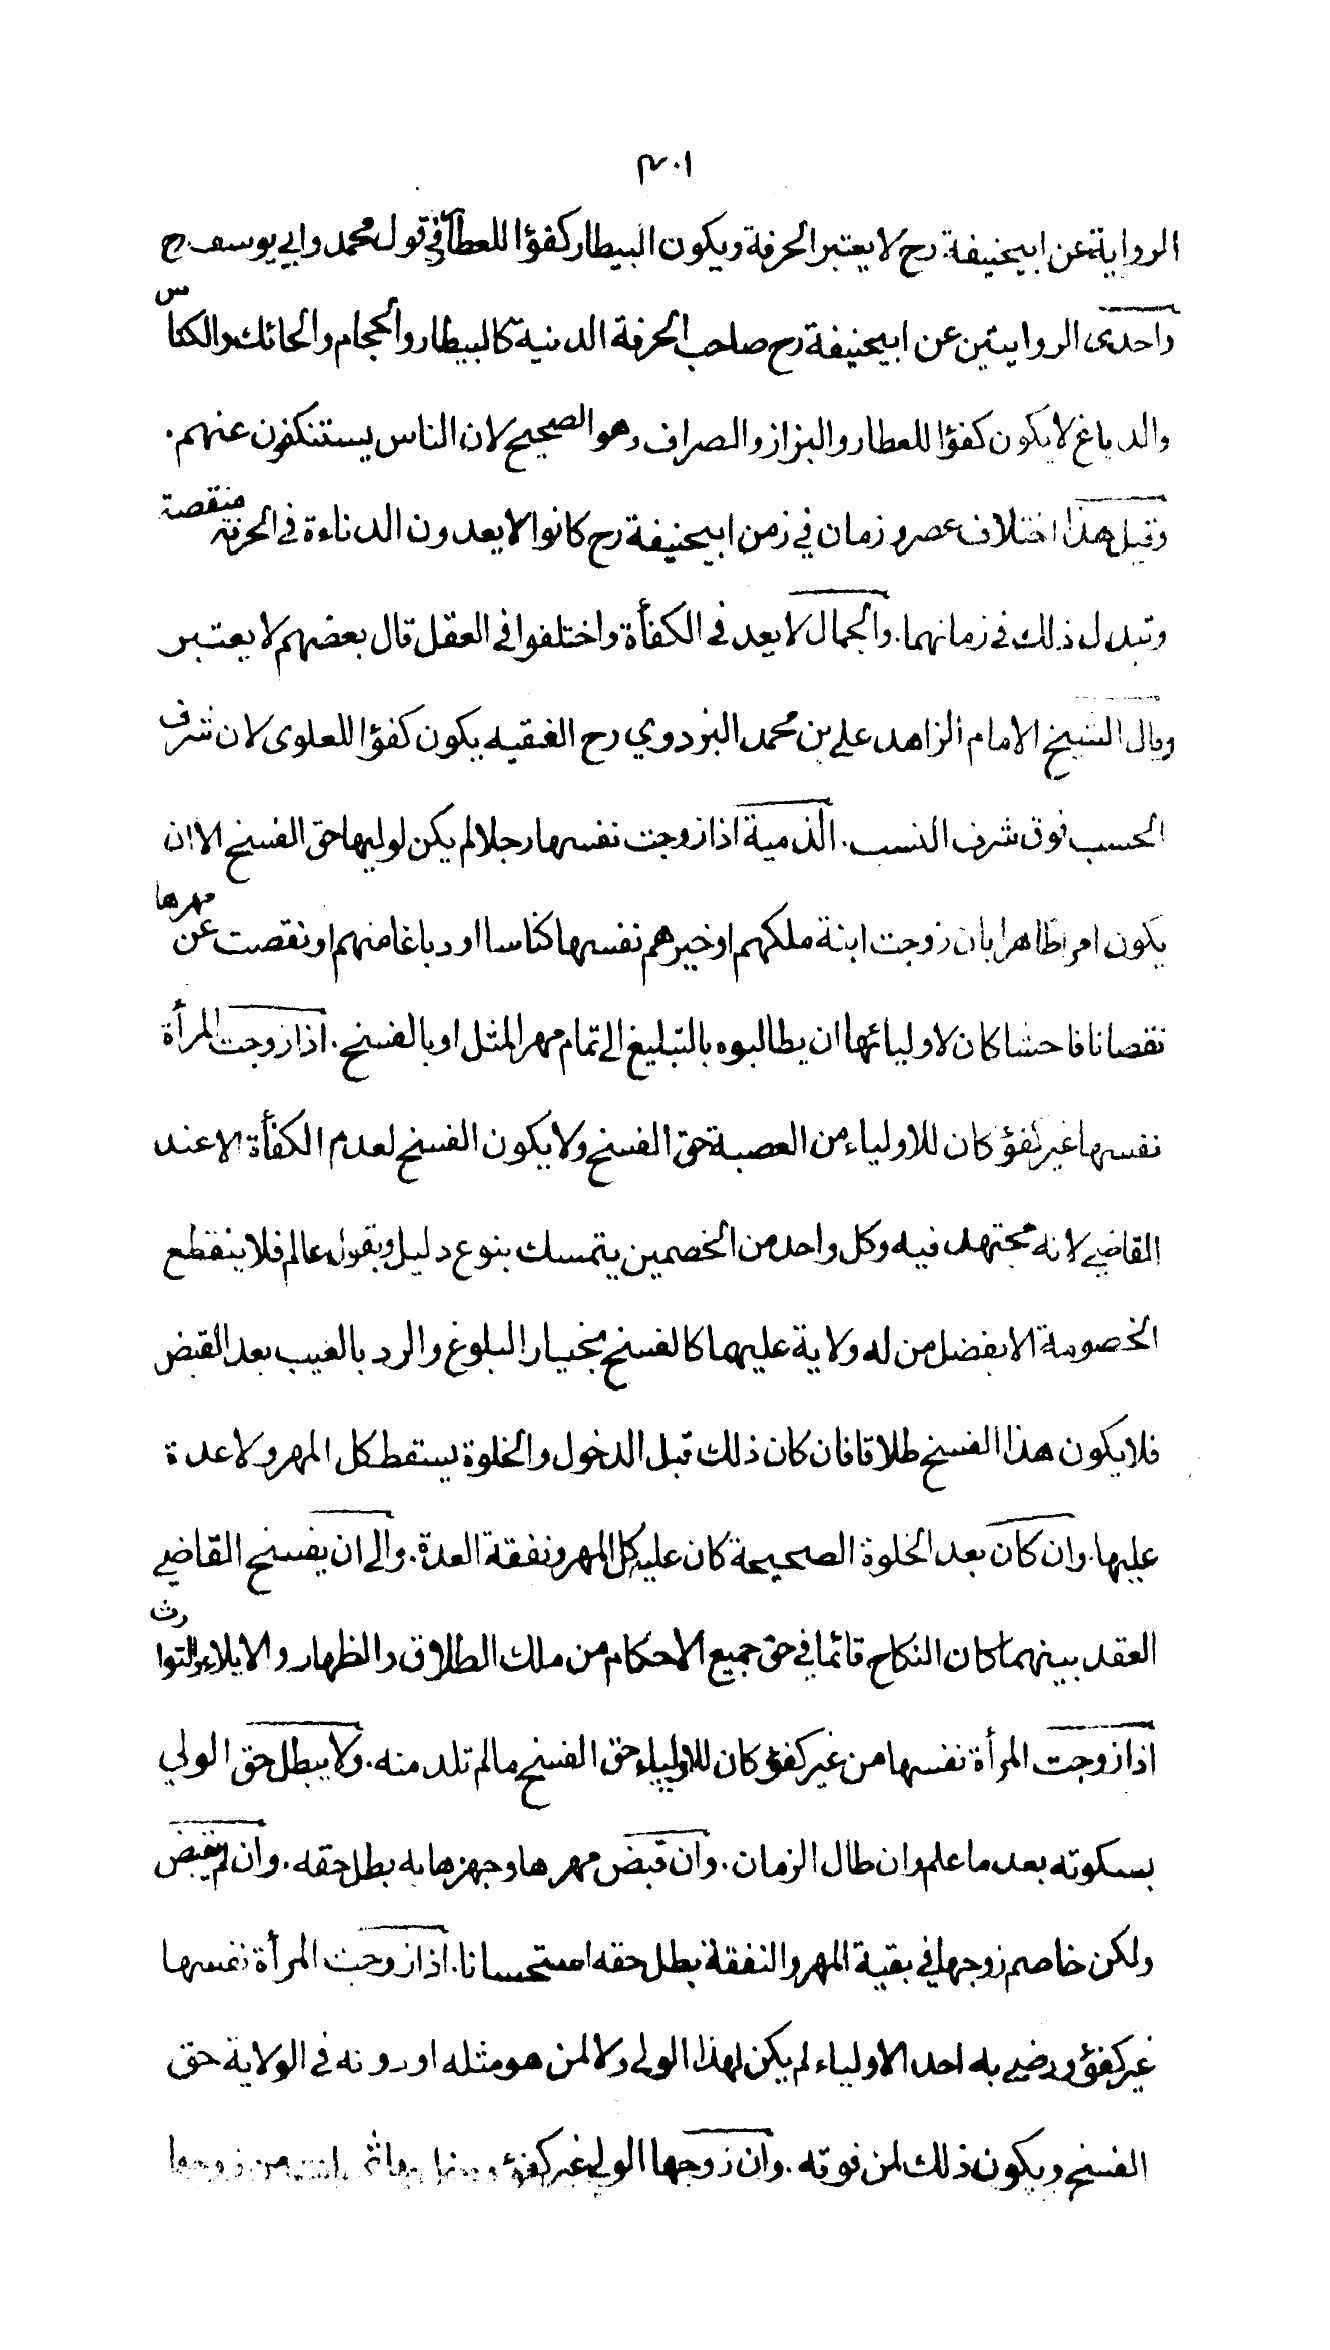 ٣٠١
الرواية عن ابيحنيفة رح لا يعتبر الحرفة ويكون البيطار كفؤا للعطار في قول محمد وابي يوسف رح
واحدى الروايتين عن ابيحنيفة رح صاحب الحرفة الدنية كالبيطار والحجام والحائك والكناس
والدباغ لا يكون كفؤا للعطار والبزاز والصراف وهو الصحيح لان الناس يستنكفون عنهم.
وقيل هذا اختلاف عصر و زمان في زمن ابيحنيفة رح كانوا لا يعدون الدناءة في الحرفة منقصة
وتبدل ذلك في زمانهما. والجمال لا يعد في الكفأة واختلفوا في العقل قال بعضهم لا يعتبر
وقال الشيخ الامام الزاهد علي بن محمد البزدوي رح الفقيه يكون كفؤا للعلوى لان شرف
الحسب فوق شرف النسب. الذمية اذا زوجت نفسها رجلا لم يكن لوليها حق الفسخ الا ان
يكون امرا ظاهرا بان زوجت ابنة ملكهم او خيرهم نفسها كناسا او دباغا منهم او نقصت عن مهرها
نقصانا فاحشا كان لاوليائها ان يطالبوه بالتبليغ الى تمام مهر المثل او بالفسخ. اذا زوجت المرأة
نفسها غير كفؤ كان للاولياء من العصبة حق الفسخ ولا يكون الفسخ لعدم الكفأة الا عند
القاضي لانه مجتهد فيه وكل واحد من الخصمين يتمسك بنوع دليل وبقول عالم فلا ينقطع
الخصومة الا بفضل من له ولاية عليهما كالفسخ بخيار البلوغ والرد بالعيب بعد القبض
فلا يكون هذا الفسخ طلاقا فان كان ذلك قبل الدخول والخلوة يسقط كل المهر ولا عدة
عليها. وان كان بعد الخلوة الصحيحة كان عليه كل المهر ونفقة العدة. والى ان يفسخ القاضي
العقد بينهما كان النكاح قائما في حق جميع الاحكام من ملك الطلاق والظهار والايلاء والتوارث
اذا زوجت المرأة نفسها من غير كفؤ كان للاولياء حق الفسخ ما لم تلد منه. ولا يبطل حق الولي
بسكوته بعد ما علم وان طال الزمان. وان قبض مهرها وجهزها به بطل حقه. وان لم يقبض
ولكن خاصم زوجها في بقية المهر والنفقة بطل حقه استحسانا. اذا زوجت المرأة نفسها
غير كفؤ ورضي به احد الاولياء لم يكن لهذا الولى ولا لمن هو مثله او دونه في الولاية حق
الفسخ ويكون ذلك لمن فوقه. وان زوجها الولي غير كفؤ ودخل بها ثم من زوجها